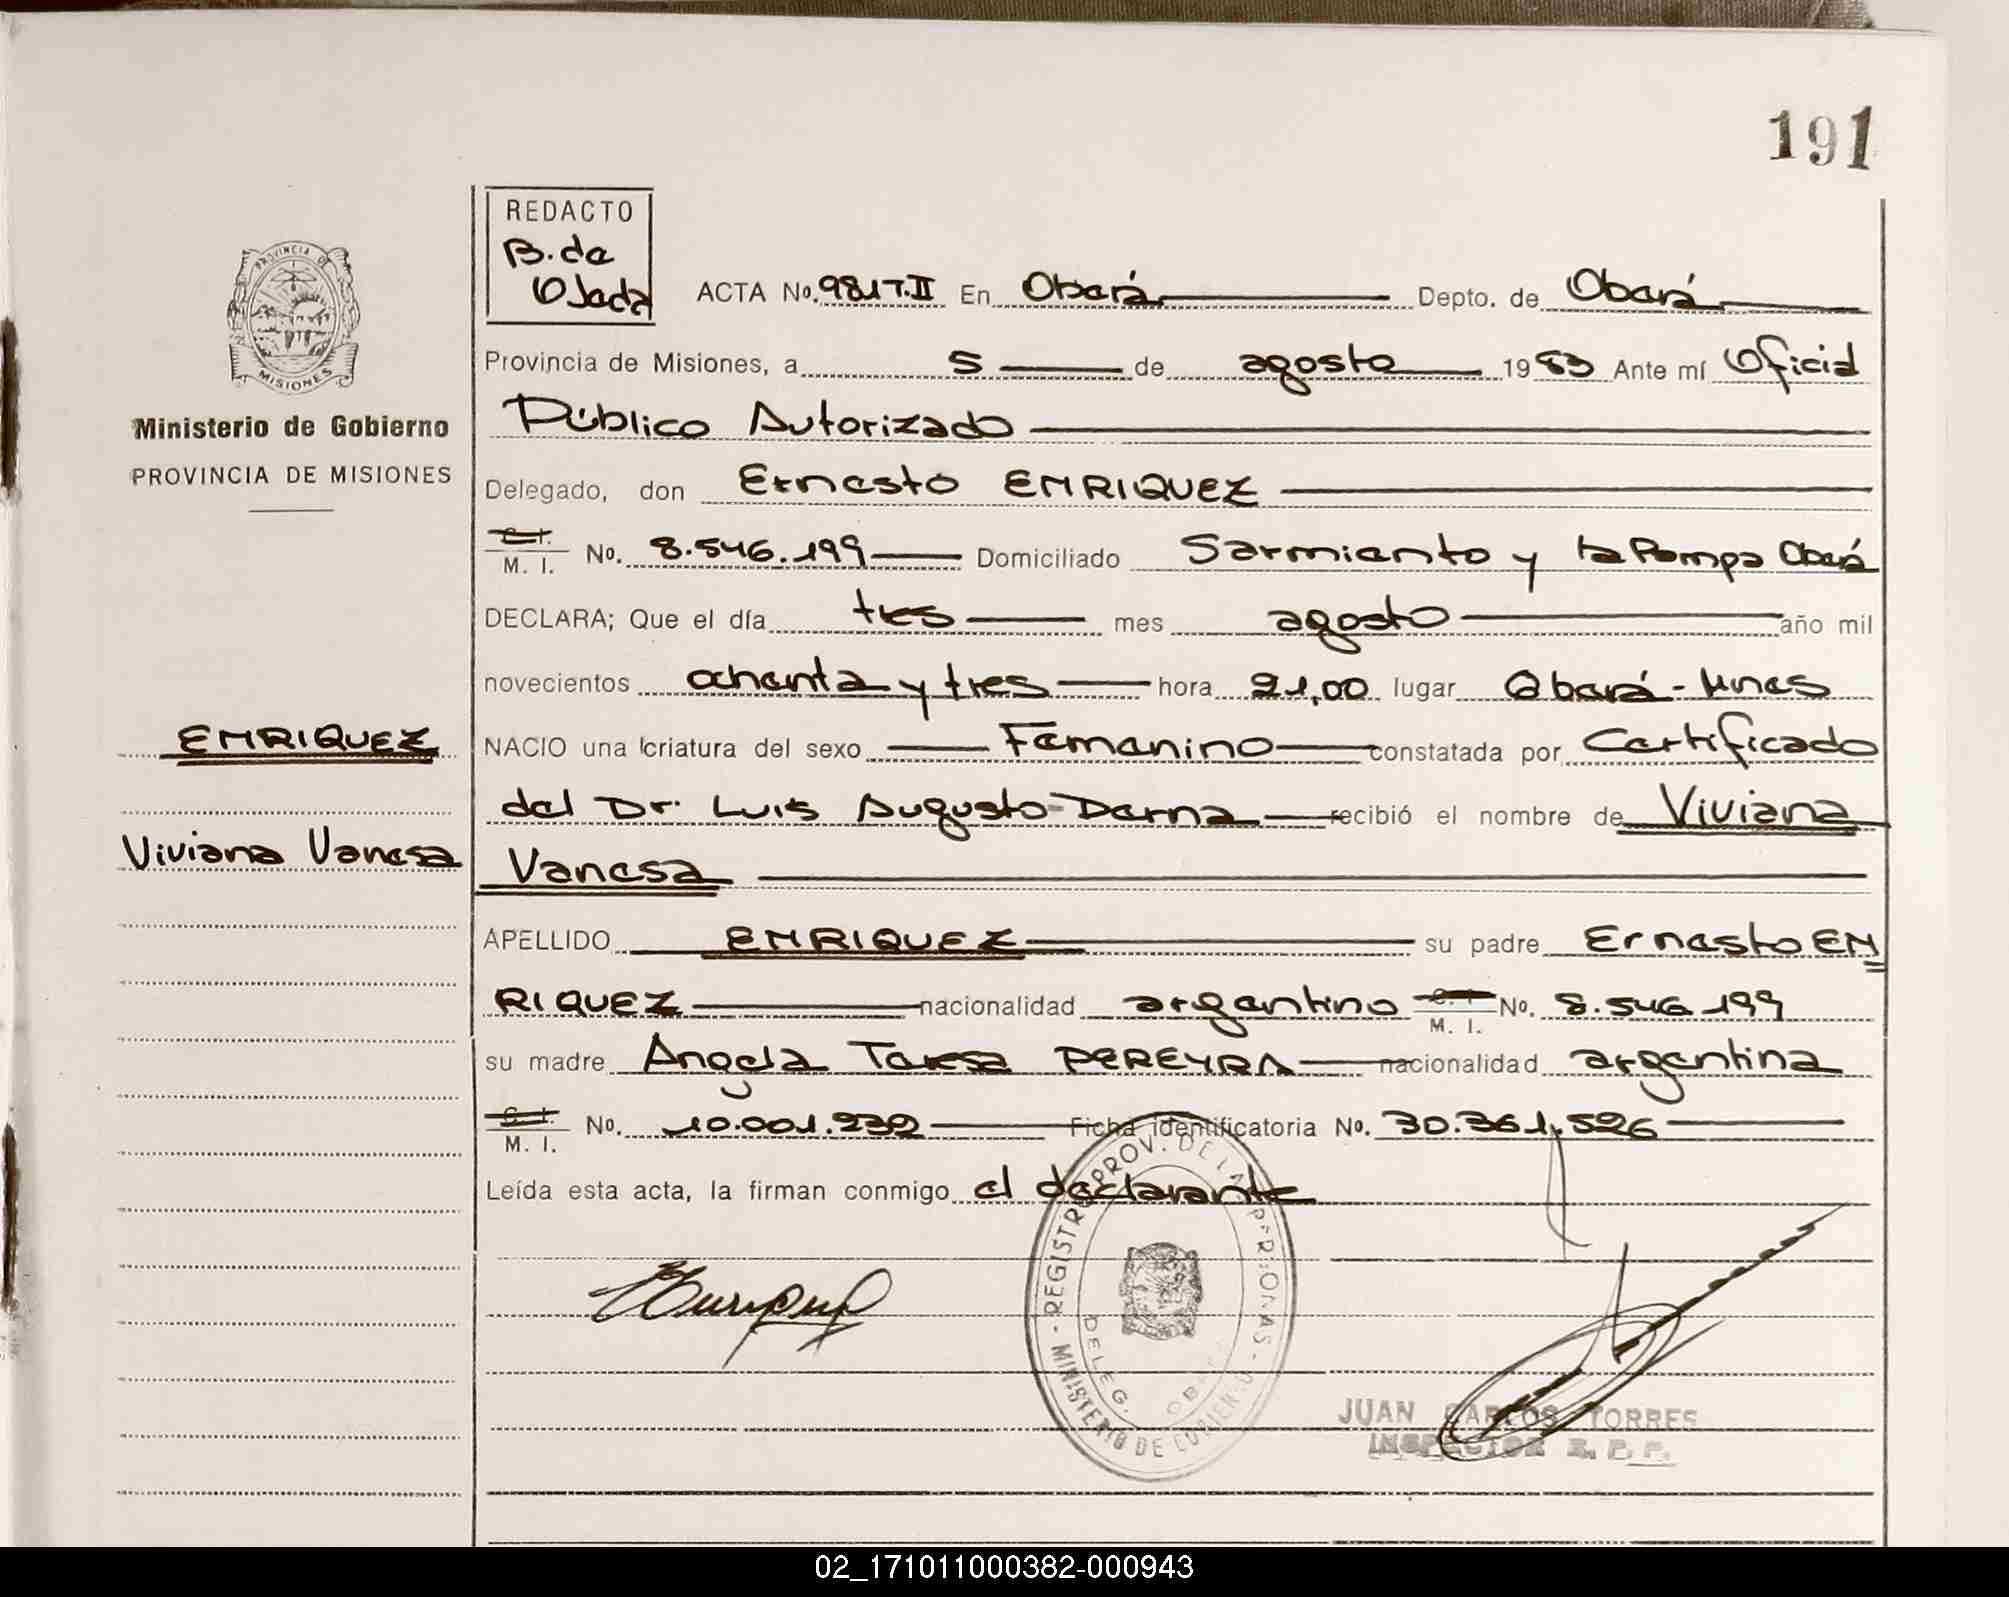 191
REDACTO
B. de
Ojeda
ACTA No. 981 T.II En Oberá Depto. de Oberá
Provincia de Misiones, a 5 de agosto 1983 Ante mí Oficial
Público Autorizado
Delegado, don Ernesto ENRIQUEZ
C. I.
M. I. No. 8.546.199 Domiciliado Sarmiento y la Pampa Oberá
DECLARA; Que el día tres mes agosto año mil
novecientos ochenta y tres hora 21,00 lugar Oberá - Mnes
NACIO una criatura del sexo Femenino constatada por Certificado
del Dr. Luis Augusto Derna recibió el nombre de Viviana
Vanesa
APELLIDO ENRIQUEZ su padre Ernesto EN
RIQUEZ nacionalidad argentino C. I. M. I. No. 8.546.199
su madre Angela Teresa PEREYRA nacionalidad argentina
C. I.
M. I. No. 10.001.232 Ficha identificatoria No. 30.361.526
Leída esta acta, la firman conmigo el declarante
PROVINCIA DE
MISIONES
Ministerio de Gobierno
PROVINCIA DE MISIONES
ENRIQUEZ
Viviana Vanesa
REGISTRO PROV. DE LAS PERSONAS
MINISTERIO DE GOBIERNO
DELEG. OBERA
JUAN CARLOS TORRES
INSPECTOR R. P. P.
02_171011000382-000943